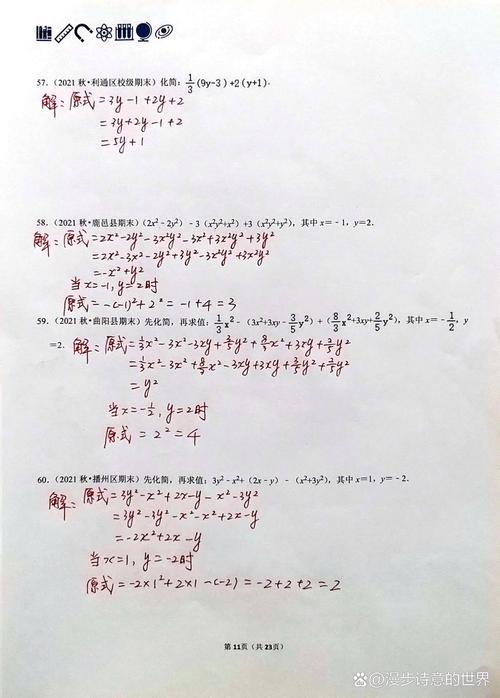 57.（2021秋•利通区校级期末）化简：1/3(9y-3)+2(y+1).
解：原式=3y-1+2y+2
=3y+2y-1+2
=5y+1
58.（2021秋•鹿邑县期末）(2x²-2y²)-3(x²y²+x²)+3(x²y²+y²)，其中x=-1，y=2.
解：原式=2x²-2y²-3x²y²-3x²+3x²y²+3y²
=2x²-3x²-2y²+3y²-3x²y²+3x²y²
=-x²+y²
当x=-1,y=2时
原式=-(-1)²+2²=-1+4=3
59.（2021秋•曲阳县期末）先化简，再求值：1/3x²-(3x²+3xy-3/5y²)+(8/3x²+3xy+2/5y²)，其中x=-1/2，y
=2.
解：原式=1/3x²-3x²-3xy+3/5y²+8/3x²+3xy+2/5y²
=1/3x²-3x²+8/3x²-3xy+3xy+3/5y²+2/5y²
=y²
当x=-1/2,y=2时
原式=2²=4
60.（2021秋•播州区期末）先化简，再求值：3y²-x²+(2x-y)-(x²+3y²)，其中x=1，y=-2.
解：原式=3y²-x²+2x-y-x²-3y²
=3y²-3y²-x²-x²+2x-y
=-2x²+2x-y
当x=1,y=-2时
原式=-2×1²+2×1-(-2)=-2+2+2=2
第11页（共23页）
@漫步诗意的世界